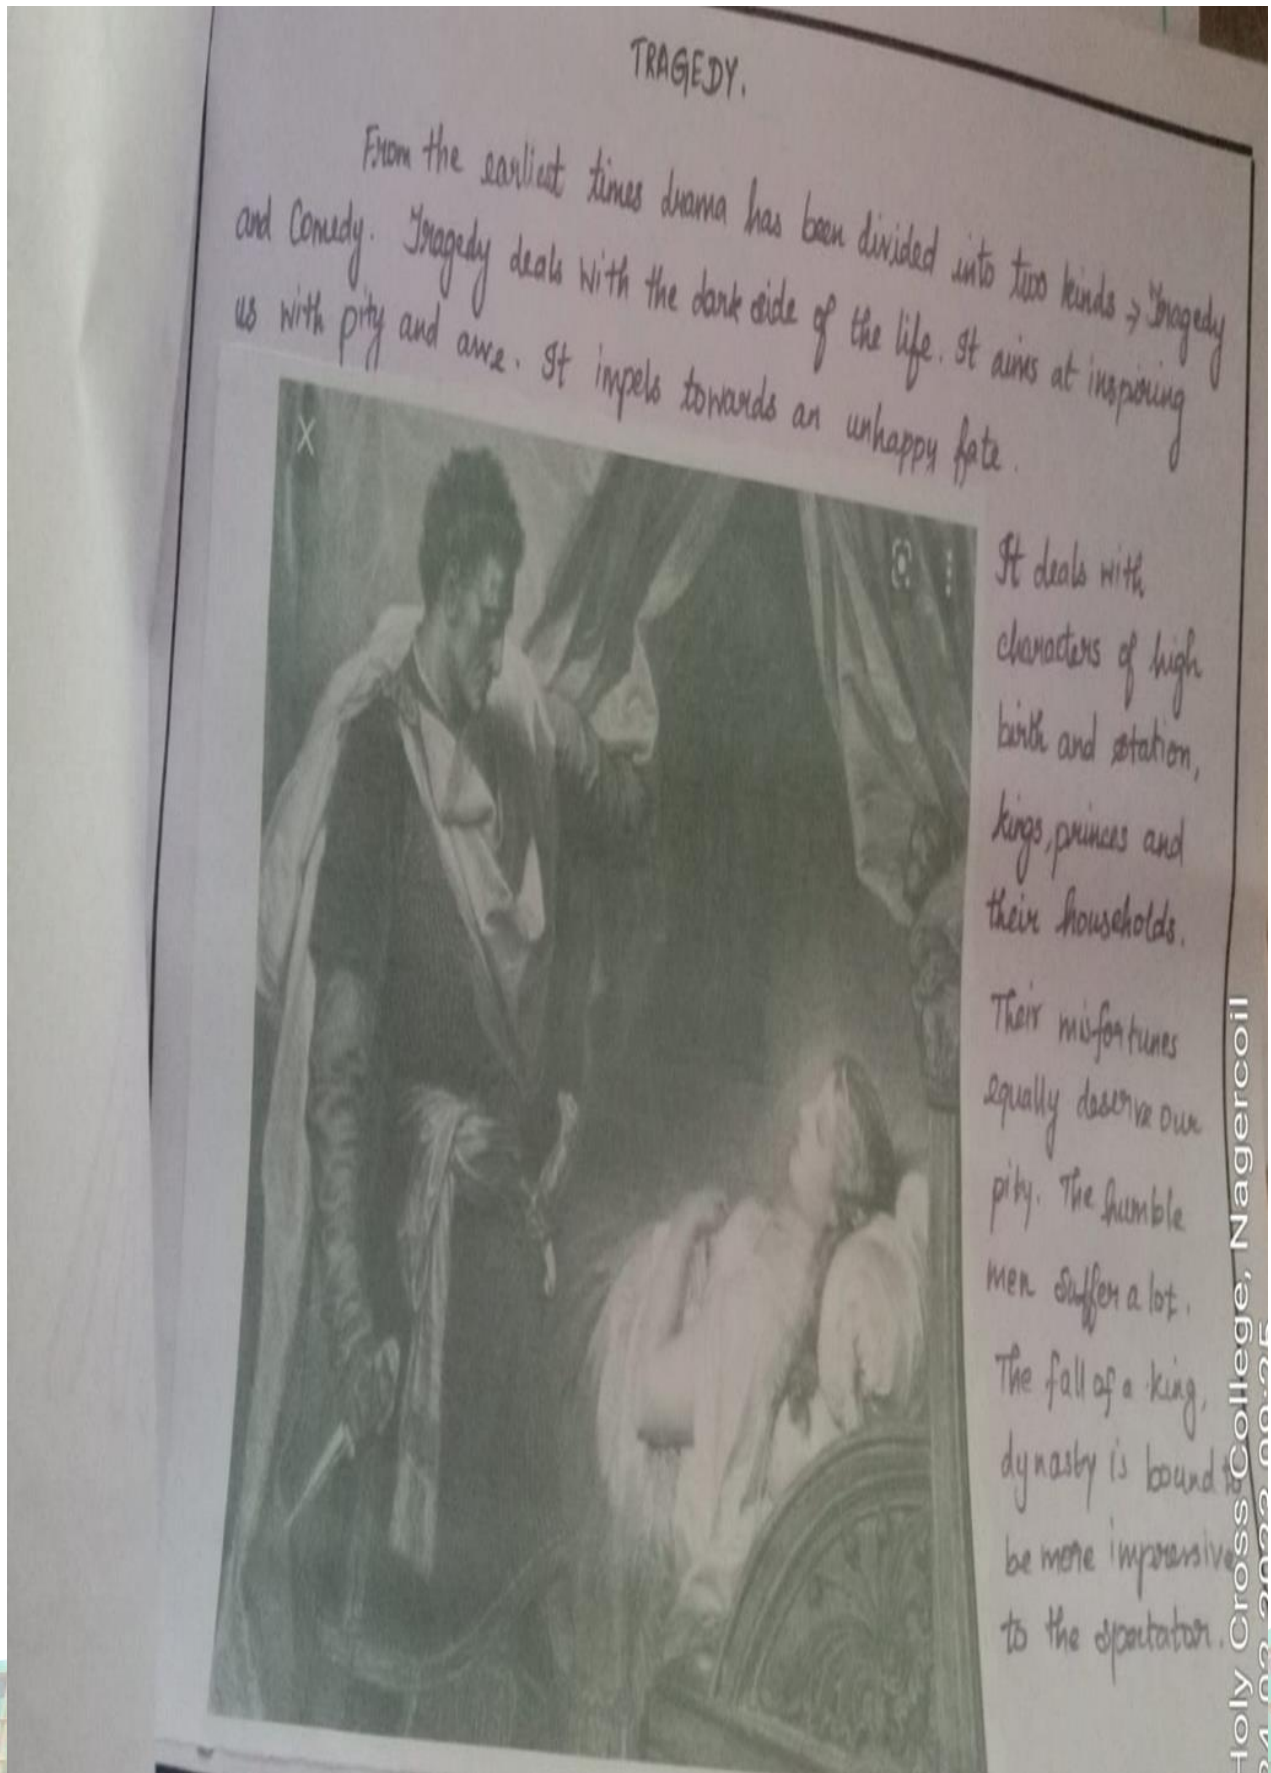 TRAGEDY.
From the earliest times drama has been divided into two kinds → Tragedy
and Comedy. Tragedy deals with the dark side of the life. It aims at inspiring
us with pity and awe. It impels towards an unhappy fate.
It deals with
characters of high
birth and station,
kings, princes and
their households.
Their misfortunes
equally deserve our
pity. The humble
men suffer a lot.
The fall of a king,
dynasty is bound to
be more impressive
to the spectator.
Holy Cross College, Nagercoil